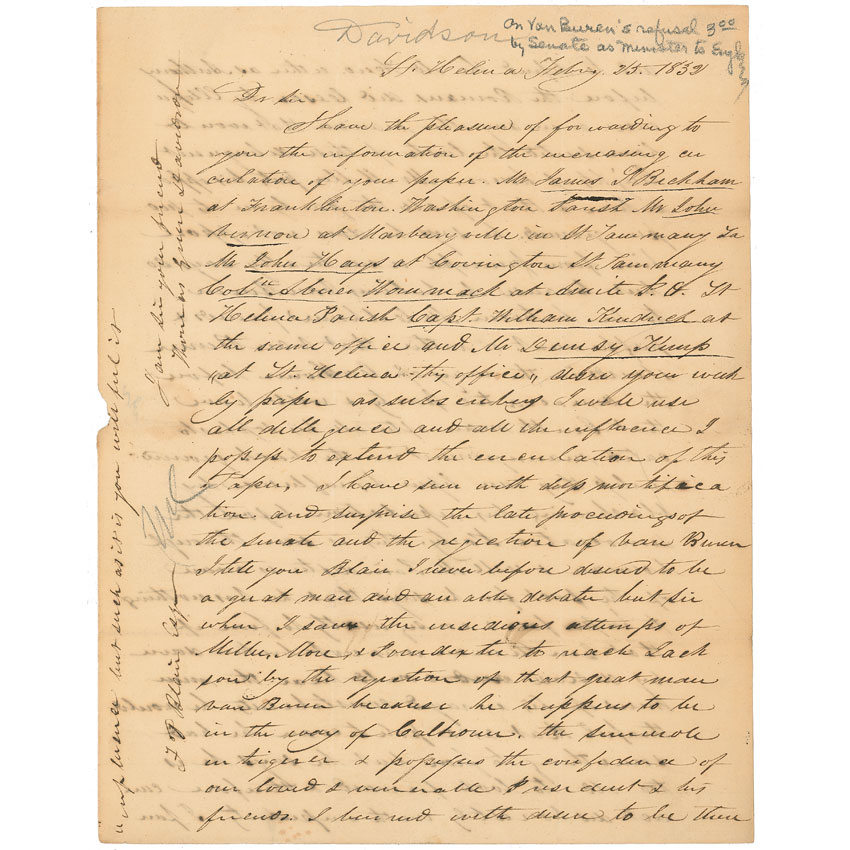 Davidson
on Van Buren's refusal 3 00
by Senate as Minister to Engld
St. Helena Feby 25. 1832
Dr Sir
I have the pleasure of forwarding to
you the information of the increasing cir
culation of your paper. Mr James P Bickham
at Franklinton Washington Parish Mr John
at Marburyville in St Tammany La
Mr John Hays at Covington St Tammany
Colo Abner Wommack at Amite P. O. St
Helena Parish Capt William Kindrick at
the same office and Mr Demsy Kemp
at St Helena office, desire your week
ly paper as subscribers I will use
all dillegence and all the influence I
possess to extend the circulation of this
Paper, I have seen with deep mortifica
tion and surprise the late proceedings of
the senate and the rejection of Van Buren
I tell you Blair I never before desired to be
a great man and an able debater but sir
when I saw the insedious attemps of
Miller, More, & Poindexter to reach Jack
son by the rejection of that great man
Van Buren because he happens to be
in the way of Calhoun. the
intiguer & possesses the confidence of
our loved & venerable President & his
friends. I burned with desire to be there
influence but such as it is you will ful is
I am sir your friend
Thomas Green Davidson
F P Blair Esqr